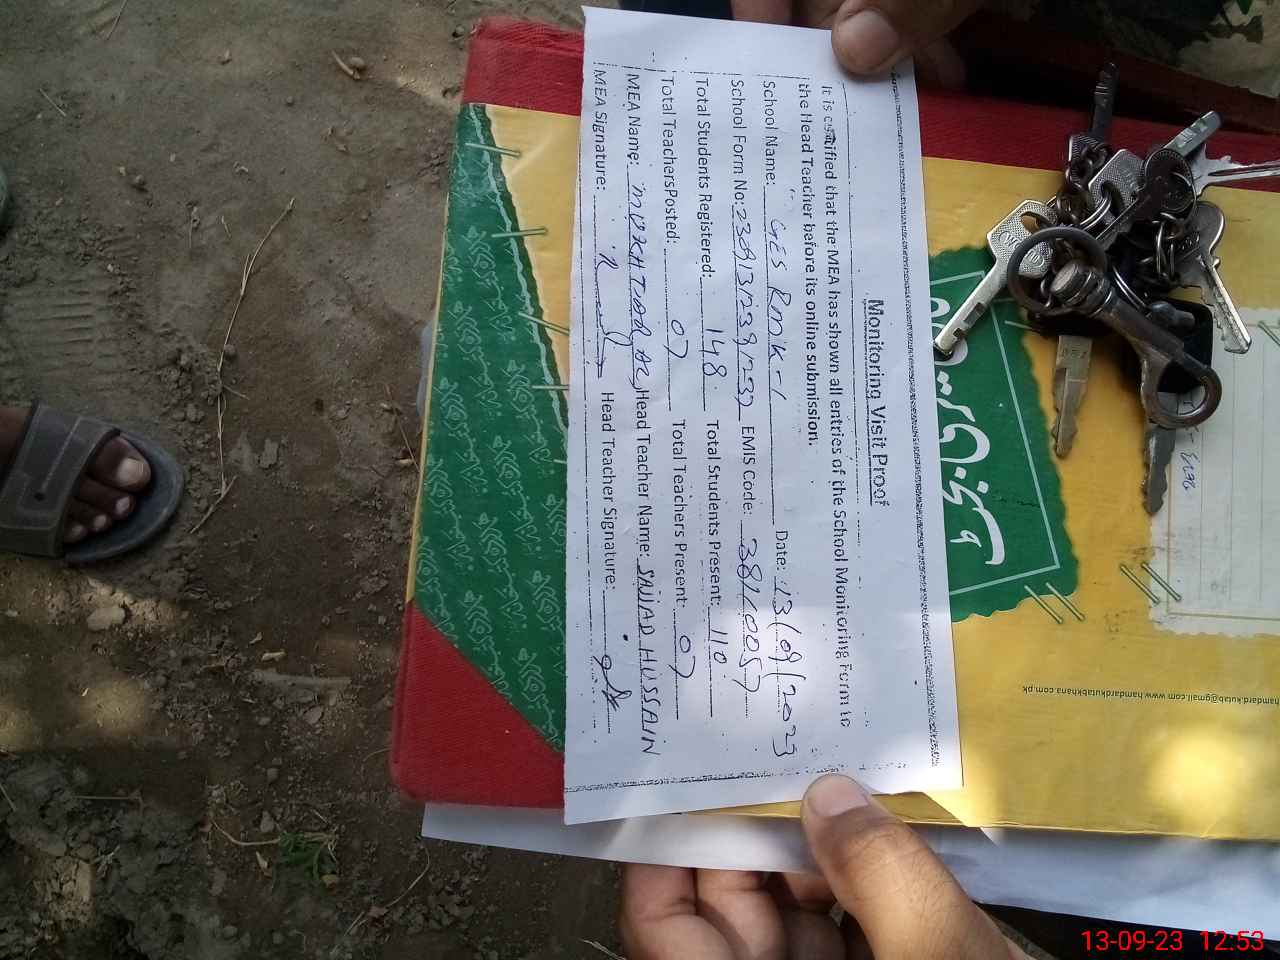 Monitoring Visit Proof
It is certified that the MEA has shown all entries of the School Monitoring Form to
the Head Teacher before its online submission.
School Name: GES RMK-1 Date: 13/09/2023
School Form No: EMIS Code: 38110057
Total Students Registered: 148 Total Students Present: 110
Total TeachersPosted: 07 Total Teachers Present: 07
MEA Name: Head Teacher Name: SAJJAD HUSSAIN
MEA Signature: Head Teacher Signature:
hamdard.kutab@gmail.com www.hamdardkutabkhana.com.pk
13-09-23 12:53